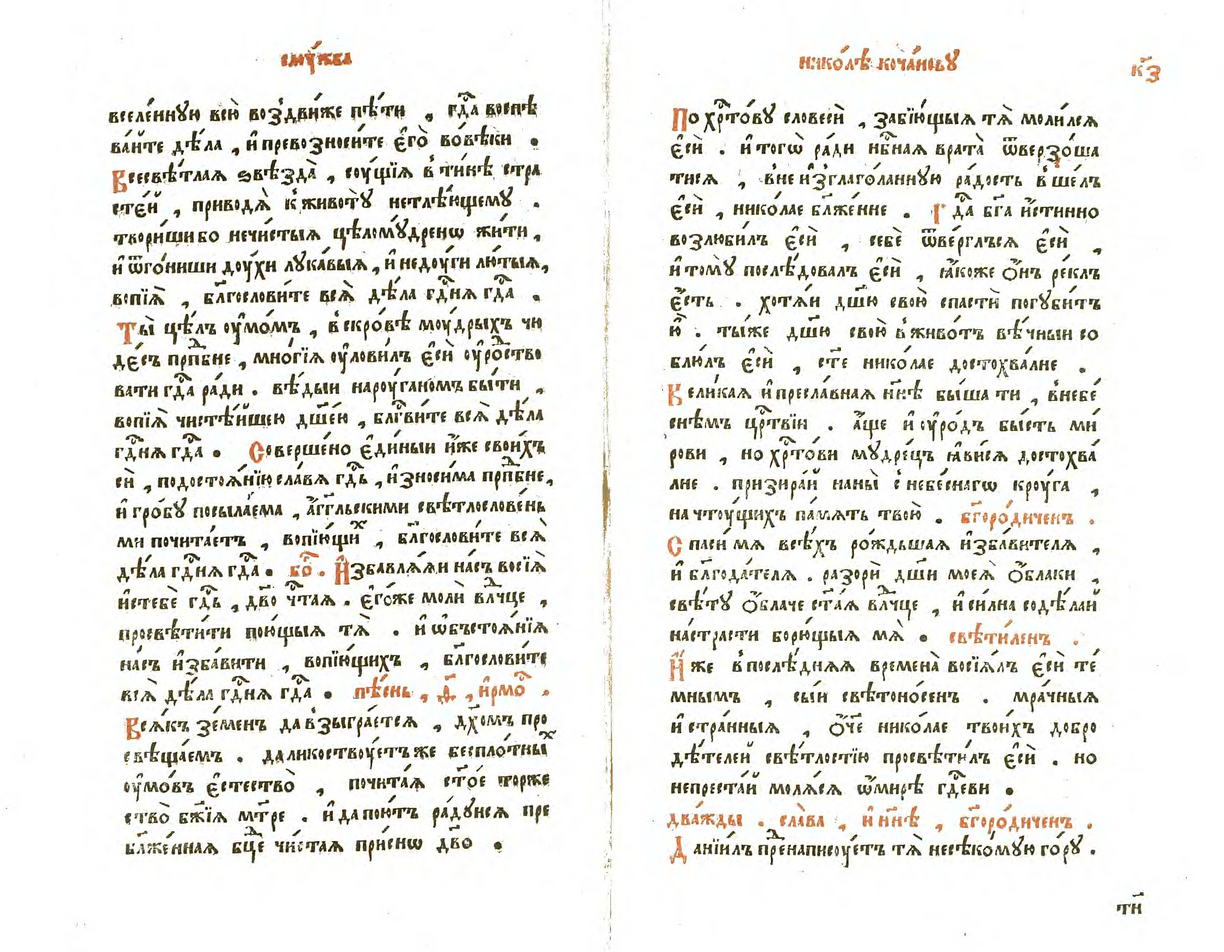 слꙋ́жба
вселе́ннꙋю всю̀ воздви́же пѣ́ти , гдⷭ҇а воспѣ
ва́йте дѣ́ла , и҆ превозноси́те є҆го̀ во́вѣки .
Всесвѣ́тлаѧ ѕвѣзда̀ , сꙋ́щїѧ в тинѣ̀ стра
сте́й , приводѧ̀ к животꙋ̀ нетлѣ́ющемꙋ .
твори́ши бо нечи́стыѧ цѣломꙋ́дренѡ жи́ти ,
и҆ ѿго́ниши дꙋ́хи лꙋка́выѧ , и҆ недꙋ́ги лю́тыѧ ,
вопїѧ̀ , блгⷭ҇ослови́те всѧ̀ дѣ́ла гдⷭ҇нѧ гдⷭ҇а .
Ты̀ цѣ́лъ ᲂу҆мо́мъ , в скро́вѣ мꙋ́дрыхъ чю
де́съ прпⷣбне , мно́гїѧ ᲂу҆лови́лъ є҆сѝ ᲂу҆ро́ство
вати гдⷭ҇а ра́ди . вѣ́дыи нарꙋ́ганомъ бы́ти ,
вопїѧ̀ чистѣ́йшею дш҃е́ю , блгⷭ҇ви́те всѧ̀ дѣ́ла
гдⷭ҇нѧ гдⷭ҇а . Соверше́но є҆ди́ныи и҆́же свои́хъ
сѝ , подостоѧ́нїю сла́вѧ гдⷭ҇ь , и҆зноси́ма прпⷣбне ,
и҆ гро́бꙋ посыла́ема , а҆́гг҃льскими свѣтлосло́вень
ми почита́етъ , вопїю́щиⷯ , блгⷭ҇ослови́те всѧ̀
дѣ́ла гдⷭ҇нѧ гдⷭ҇а . бо҃ . И҆збавлѧ́ѧи на́съ восїѧ̀
и҆стебѐ гдⷭ҇ь , дв҃о чⷭ҇таѧ . є҆го́же молѝ влⷣчце ,
просвѣти́ти пою́щыѧ тѧ̀ . и҆ ѡ҆бъстоѧ́нїѧ
на́съ и҆зба́вити , вопїю́щихъ , блгⷭ҇ослови́те
всѧ̀ дѣ́ла гдⷭ҇нѧ гдⷭ҇а . пѣ́снь , д҃ , и҆рмоⷭ҇ .
Всѧ́къ зе́менъ да взыгра́етсѧ , дх҃омъ про
свѣща́емъ . да ликоствꙋ́етъ же безпло́тныⷯ
ᲂу҆мо́въ є҆стество̀ , почита́ѧ ст҃о́е торже
ство̀ бж҃їѧ мт҃ре . и҆ да пою́тъ ра́дꙋисѧ пре
бл҃же́ннаѧ бц҃е чи́стаѧ при́снѡ дв҃о .
нико́лѣ коча́новꙋ
к҃з
По хрⷭ҇то́вꙋ словесѝ , заби́ющыѧ тѧ̀ моли́лсѧ
є҆сѝ . и҆ тогѡ̀ ра́ди нбⷭ҇наѧ врата̀ ѿверзо́ша
тисѧ , в неи҆зглаго́ланнꙋю ра́дость вше́лъ
є҆сѝ , нико́лае бл҃же́нне . Гдⷭ҇а бг҃а и҆́стинно
возлюби́лъ є҆сѝ , себѐ ѿве́рглъсѧ є҆сѝ ,
и҆ томꙋ̀ послѣ́довалъ є҆сѝ , ꙗ҆́коже ѻ҆́нъ ре́клъ
є҆́сть . хотѧ́и дш҃ю свою̀ спастѝ погꙋби́тъ
ю҆̀ . ты́же дш҃ю свою̀ в живо́тъ вѣ́чныи со
блю́лъ є҆сѝ , ст҃е нико́лае достохва́лне .
Вели́каѧ и҆ пресла́внаѧ нн҃ѣ бы́ша ти , в небе́
снѣмъ црⷭ҇твїи . а҆́ще и҆ ᲂу҆ро́дъ бы́сть ми́
рови , но хрⷭ҇то́ви мꙋдре́цъ ꙗ҆ви́сѧ достохва́
лне . призира́й на ны̀ с небе́снагѡ крꙋ́га ,
на чтꙋ́щихъ па́мѧть твою̀ . бг҃оро́диченъ .
Спаси́ мѧ всѣ́хъ ро́ждьшаѧ и҆зба́вителѧ ,
и҆ благода́телѧ . разорѝ дш҃и моеѧ̀ ѻ҆́блаки ,
свѣ́тꙋ ѻ҆́блаче ст҃а́ѧ влⷣчце , и҆ си́лна содѣ́лай
на стра́сти борю́щыѧ мѧ̀ . свѣти́ленъ .
И҆́же в послѣ́днѧѧ времена̀ восїѧ́лъ є҆сѝ те́
мнымъ , сы́и свѣтоно́сенъ . мра́чныѧ
и҆ стра́нныѧ , ѻ҆́ч҃е нико́лае твои́хъ добро
дѣ́телей свѣ́тлостїю просвѣти́лъ є҆сѝ . но
непреста́й молѧ́сѧ ѡ҆ ми́рѣ гдⷭ҇еви .
два́жды . сла́ва , и҆ нн҃ѣ , бг҃оро́диченъ .
Данїи́лъ пренаписꙋ́етъ тѧ̀ несѣко́мꙋю го́рꙋ .
ти҃